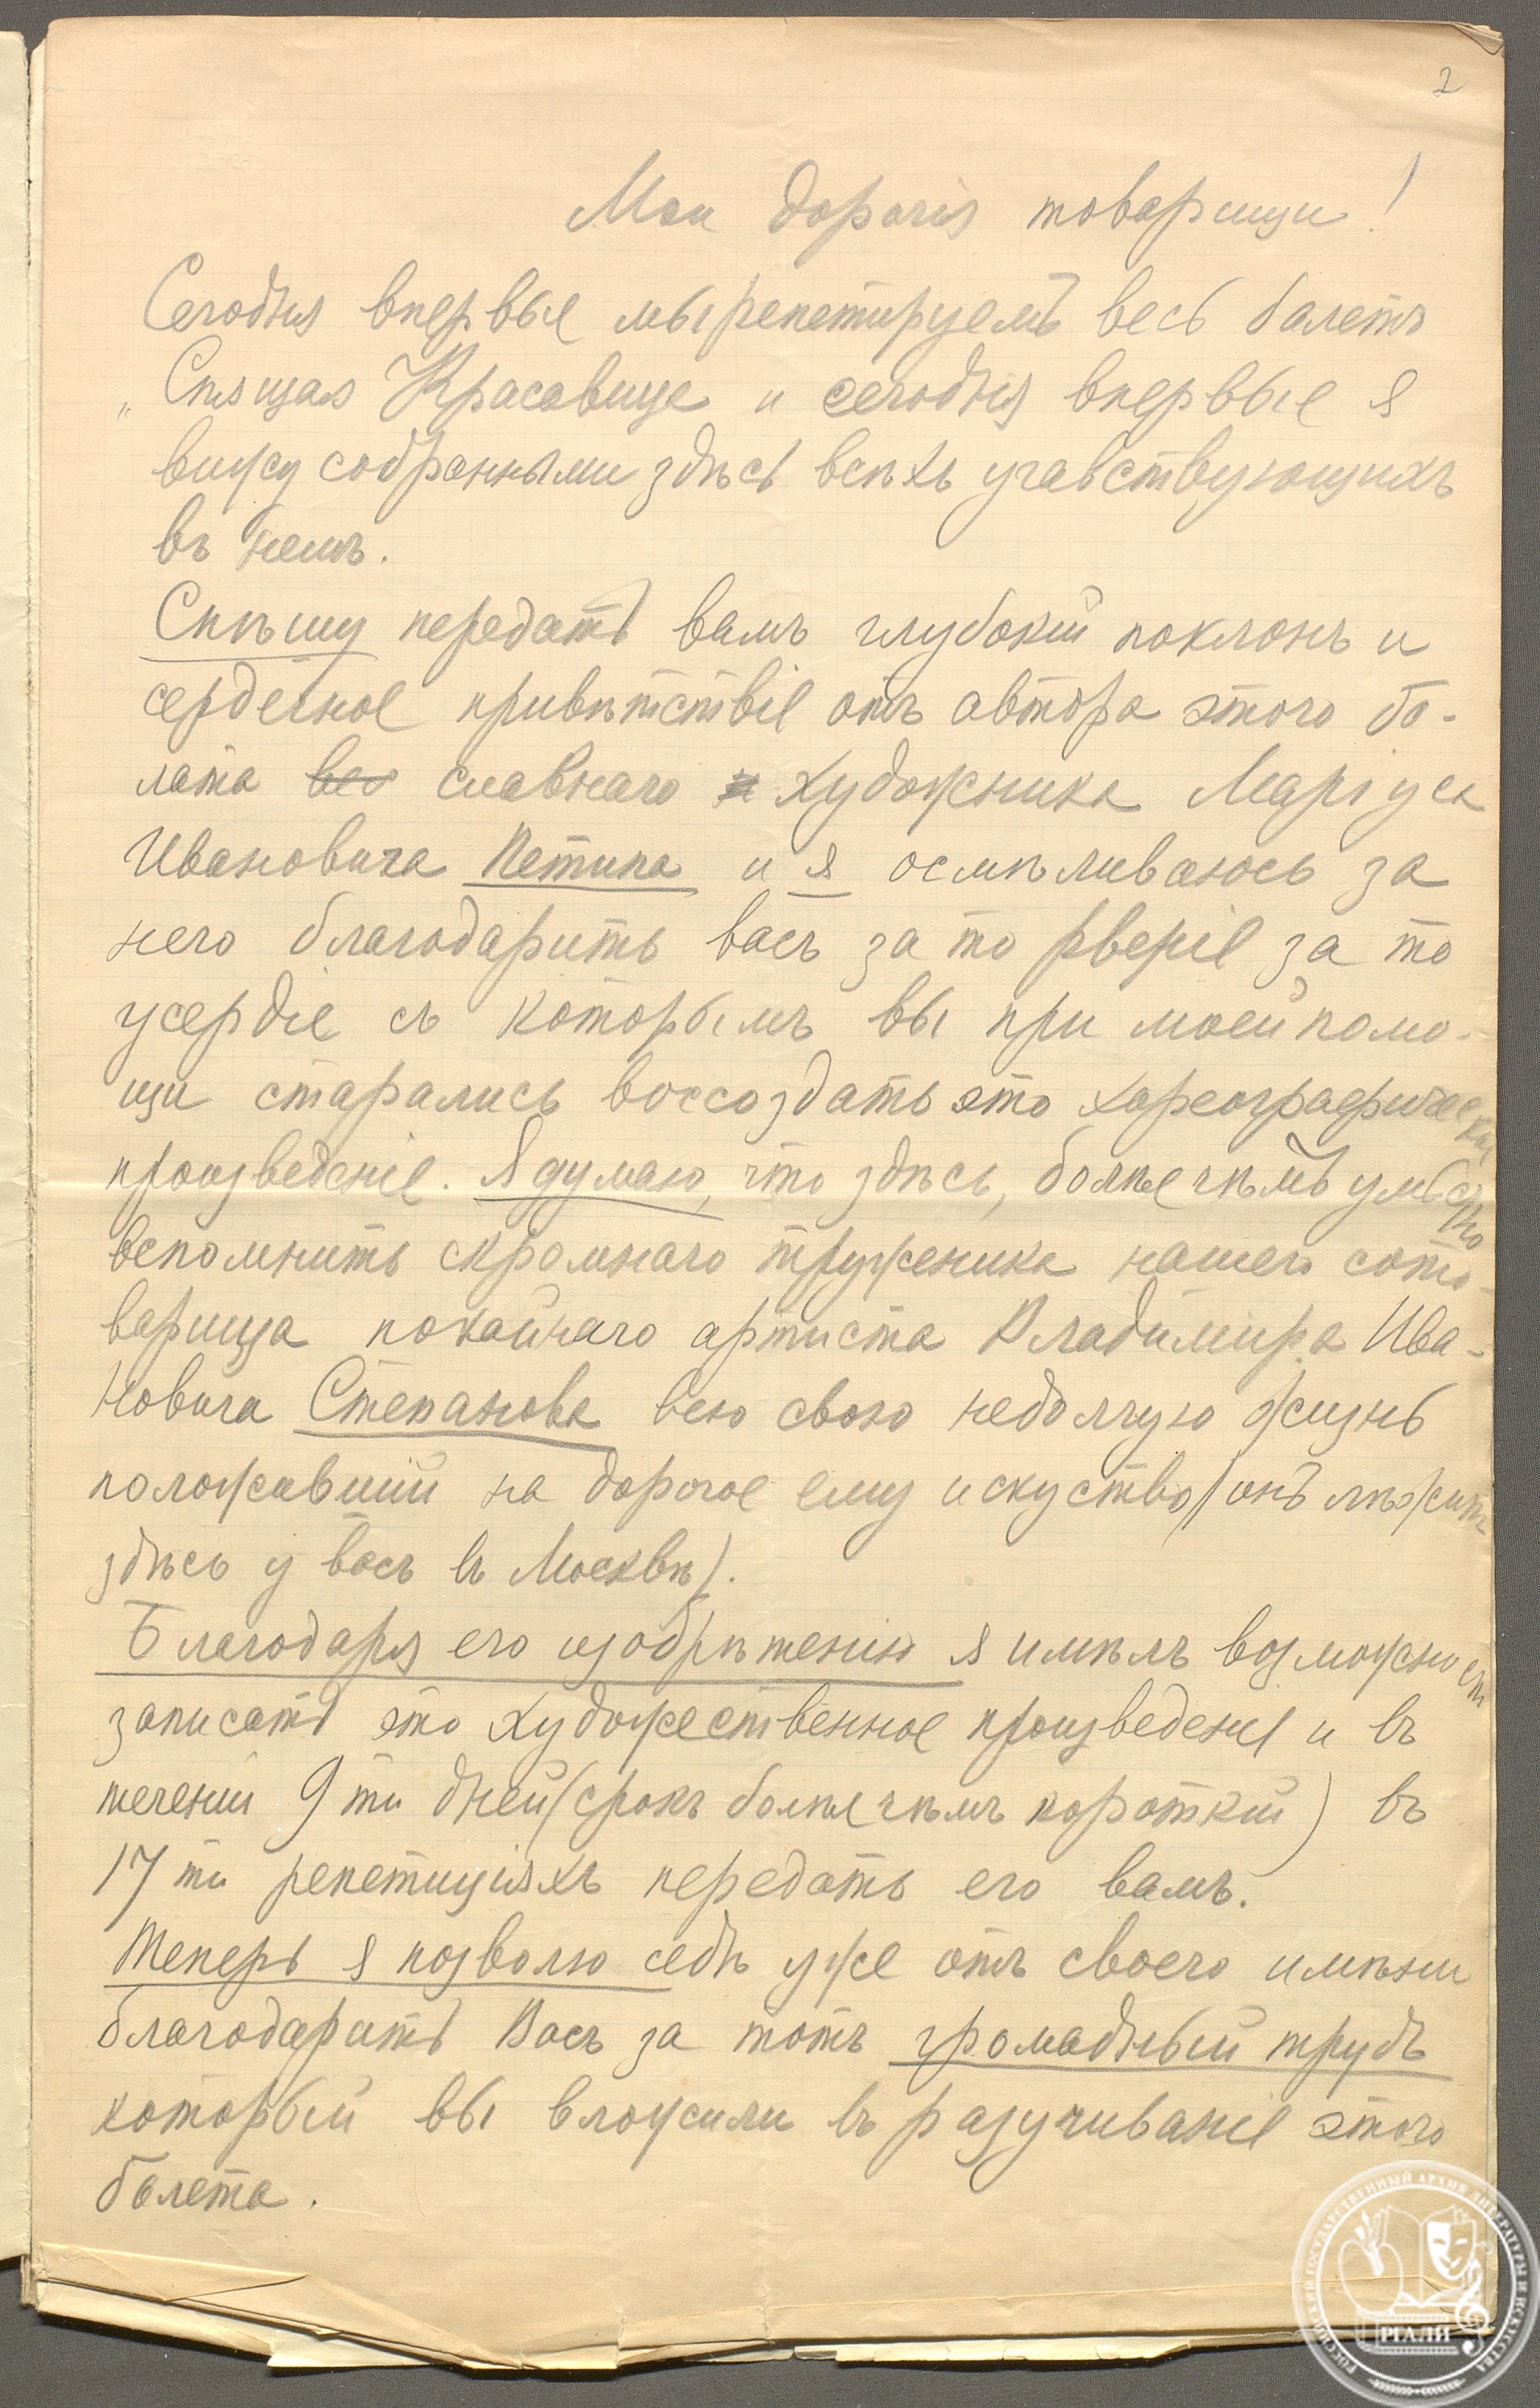 2
Мои дорогія товарищи!
Сегодня впервые мы репетируемъ весь балетъ
„Спящая Красавица и сегодня впервые я
вижу собранными здѣсь всѣхъ учавствующихъ
въ немъ.
Спѣшу передать вамъ глубокій поклонъ и
сердечное привѣтствіе отъ автора этого ба-
лета вес славнаго и художника Маріуса
Ивановича Петипа и я осмѣливаюсь за
него благодарить васъ за то рвеніе за то
усердіе съ которымъ вы при моей помо-
щи старались воссоздать это хореографическое
произведеніе. Я думаю, что здѣсь, болѣе чѣмъ умѣстно
вспомнить скромнаго труженика нашего сото-
варища покойнаго артиста Владиміра Ива-
новича Степанова всю свою недолгую жизнь
положившій на дорогое ему искуство (онъ лежитъ
здѣсь у васъ въ Москвѣ).
Благодаря его изобрѣтенію я имѣлъ возможность
записать это художественное произведеніе и въ
теченіи 9ти дней (срокъ болѣе чѣмъ короткій) въ
17ти репетиціяхъ передать его вамъ.
Теперь я позволю себѣ уже отъ своего имѣни
благодарить Васъ за тотъ громадный трудъ
который вы вложили въ разучиваніе этого
балета.
РОССИЙСКИЙ ГОСУДАРСТВЕННЫЙ АРХИВ ЛИТЕРАТУРЫ И ИСКУССТВА
РГАЛИ